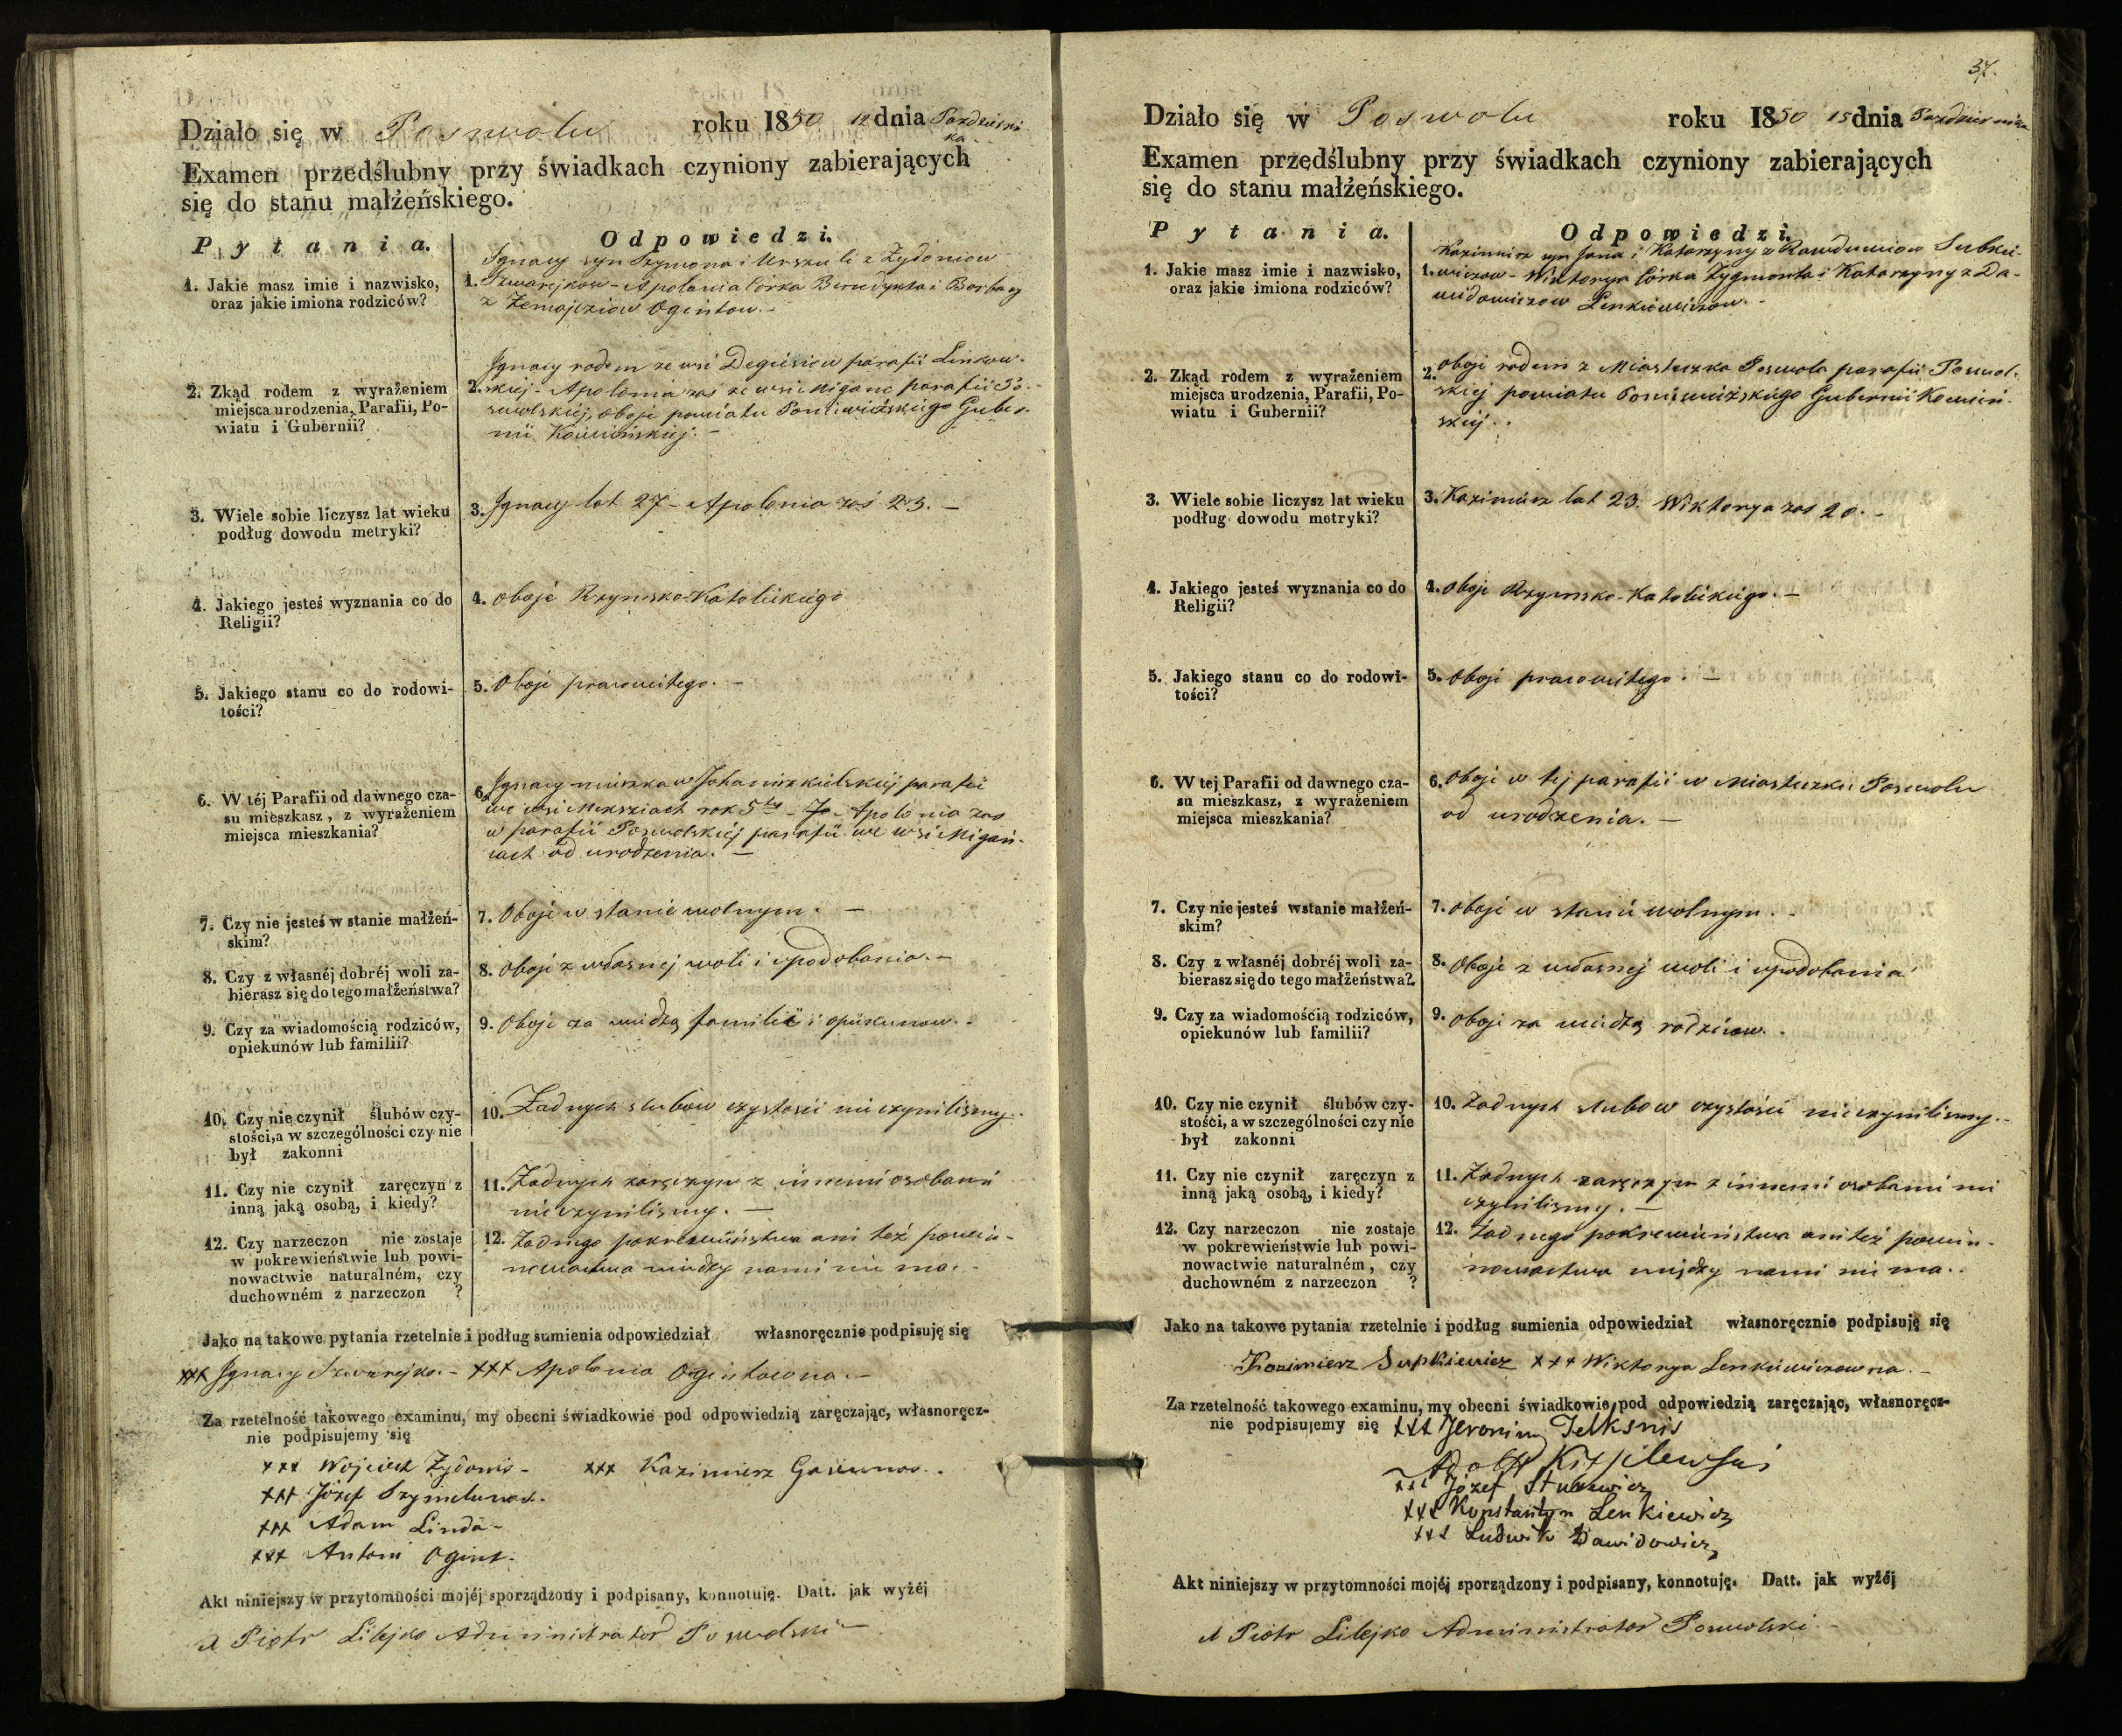 Działo się w Poswolu roku 1850 12 dnia Pazdzierni
ka
Examen przedślubny przy świadkach czyniony zabierających
się do stanu małżeńskiego.
P y t a n i a.
O d p o w i e d z i.
1. Jakie masz imie i nazwisko,
oraz jakie imiona rodziców?
Ignacy syn Szymona i Urszuli z Zydoniow
1. Szwarejkow - Apolonia Córka Benedykta i Barbary
z Zemajciow Ogintow. -
2. Zkąd rodem z wyrażeniem
miejsca urodzenia, Parafii, Po-
wiatu i Gubernii?
Ignacy rodem ze wsi Degiesiow parafii Linkow-
2. skiej - Apolonia zaś ze wsi Migańc parafii Po-
swolskiej, oboje powiatu Poniewieżskiego Guber-
nii Kowieńskiej. -
3. Wiele sobie liczysz lat wieku
podług dowodu metryki?
3. Ignacy lat 27 - Apolonia zaś 23. -
4. Jakiego jesteś wyznania co do
Religii?
4. oboje Rzymsko-Katolickiego
5. Jakiego stanu co do rodowi-
tości?
5. Oboje prawowitego. -
6. W téj Parafii od dawnego cza-
su mieszkasz, z wyrażeniem
miejsca mieszkania?
6. Ignacy mieszka w Johaniszkielskiej parafii
we wsi rok 5ty - Apolonia zas
w parafii Poswolskiej parafii we wsi Migań-
cach od urodzenia. -
7. Czy nie jesteś w stanie małżeń-
skim?
7. Oboje w stanie wolnym. -
8. Czy z własnéj dobréj woli za-
bierasz się do tego małżeństwa?
8. Oboje z własnej woli i upodobania. -
9. Czy za wiadomością rodziców,
opiekunów lub familii?
9. Oboje za wiedzą familii i opiekunow. -
10. Czy nie czynił ślubów czy-
stości, a w szczególności czy nie
był zakonni
10. Żadnych slubow czystosci nie czynilismy. -
11. Czy nie czynił zaręczyn z
inną jaką osobą, i kiedy?
11. Żadnych zaręczyn z innemi osobami
nie czynilismy. -
12. Czy narzeczon nie zostaje
w pokrewieństwie lub powi-
nowactwie naturalném, czy
duchowném z narzeczon ?
12. Żadnego pokrewieństwa ani też powin-
nowactwa między nami nie ma. -
Jako na takowe pytania rzetelnie i podług sumienia odpowiedział własnoręcznie podpisuję się
xxx Ignacy Szwarejko. - xxx Apolonia Ogintowna. -
Za rzetelność takowego examinu, my obecni świadkowie pod odpowiedzią zaręczając, własnoręcz-
nie podpisujemy się
xxx Wojciech Zydonis - xxx Kazimierz Gasiunas.
xxx Józef Szymelunas.
xxx Adam Linda -
xxx Antoni Ogint -
Akt niniejszy w przytomności mojéj sporządzony i podpisany, konnotuję. Datt. jak wyżéj
X Piotr Lilejko Administrator Poswolski -
37.
Działo się w Poswolu roku 1850 15 dnia Pazdziernika
Examen przedślubny przy świadkach czyniony zabierających
się do stanu małżeńskiego.
P y t a n i a.
O d p o w i e d z i.
1. Jakie masz imie i nazwisko,
oraz jakie imiona rodziców?
Kazimierz syn Jana i Katarzyny z Rawduniow Subkie-
1. wiczow - Wiktorya Córka Zygmonta i Katarzyny z Da-
widowiczow Lenkiewiczow. -
2. Zkąd rodem z wyrażeniem
miejsca urodzenia, Parafii, Po-
wiatu i Gubernii?
2. Oboje rodem z Miasteczka Poswola parafii Poswol-
skiej powiatu Poniewieżskiego Gubernii Kowień-
skiej. -
3. Wiele sobie liczysz lat wieku
podług dowodu metryki?
3. Kazimierz lat 23. Wiktorya zaś 20. -
4. Jakiego jesteś wyznania co do
Religii?
4. Oboje Rzymsko-Katolickiego. -
5. Jakiego stanu co do rodowi-
tości?
5. Oboje prawowitego. -
6. W tej Parafii od dawnego cza-
su mieszkasz, z wyrażeniem
miejsca mieszkania?
6. Oboje w tej parafii w Miasteczku Poswolu
od urodzenia. -
7. Czy nie jesteś wstanie małżeń-
skim?
7. Oboje w stanie wolnym. -
8. Czy z własnéj dobréj woli za-
bierasz się do tego małżeństwa?
8. Oboje z własnej woli i upodobania
9. Czy za wiadomością rodziców,
opiekunów lub familii?
9. Oboje za wiedzą rodziców. -
10. Czy nie czynił ślubów czy-
stości, a w szczególności czy nie
był zakonni
10. Żadnych slubow czystości nie czynilismy. -
11. Czy nie czynił zaręczyn z
inną jaką osobą, i kiedy?
11. Żadnych zaręczyn z innemi osobami nie
czynilismy. -
12. Czy narzeczon nie zostaje
w pokrewieństwie lub powi-
nowactwie naturalném, czy
duchowném z narzeczon ?
12. Żadnego pokrewieństwa ani też powin-
nowactwa między nami nie ma. -
Jako na takowe pytania rzetelnie i podług sumienia odpowiedział własnoręcznie podpisuję się
Kazimierz Supkiewicz xxx Wiktorya Lenkiewiczowna. -
Za rzetelność takowego examinu, my obecni świadkowie pod odpowiedzią zaręczając, własnoręcz-
nie podpisujemy się xxx Jeronim Jelksnis
Adolf
xxx Józef
xxx Konstantyn Lenkiewicz
xxx Ludwik Dawidowicz
Akt niniejszy w przytomności mojéj sporządzony i podpisany, konnotuję. Datt. jak wyżéj
X Piotr Lilejko Administrator Poswolski. -